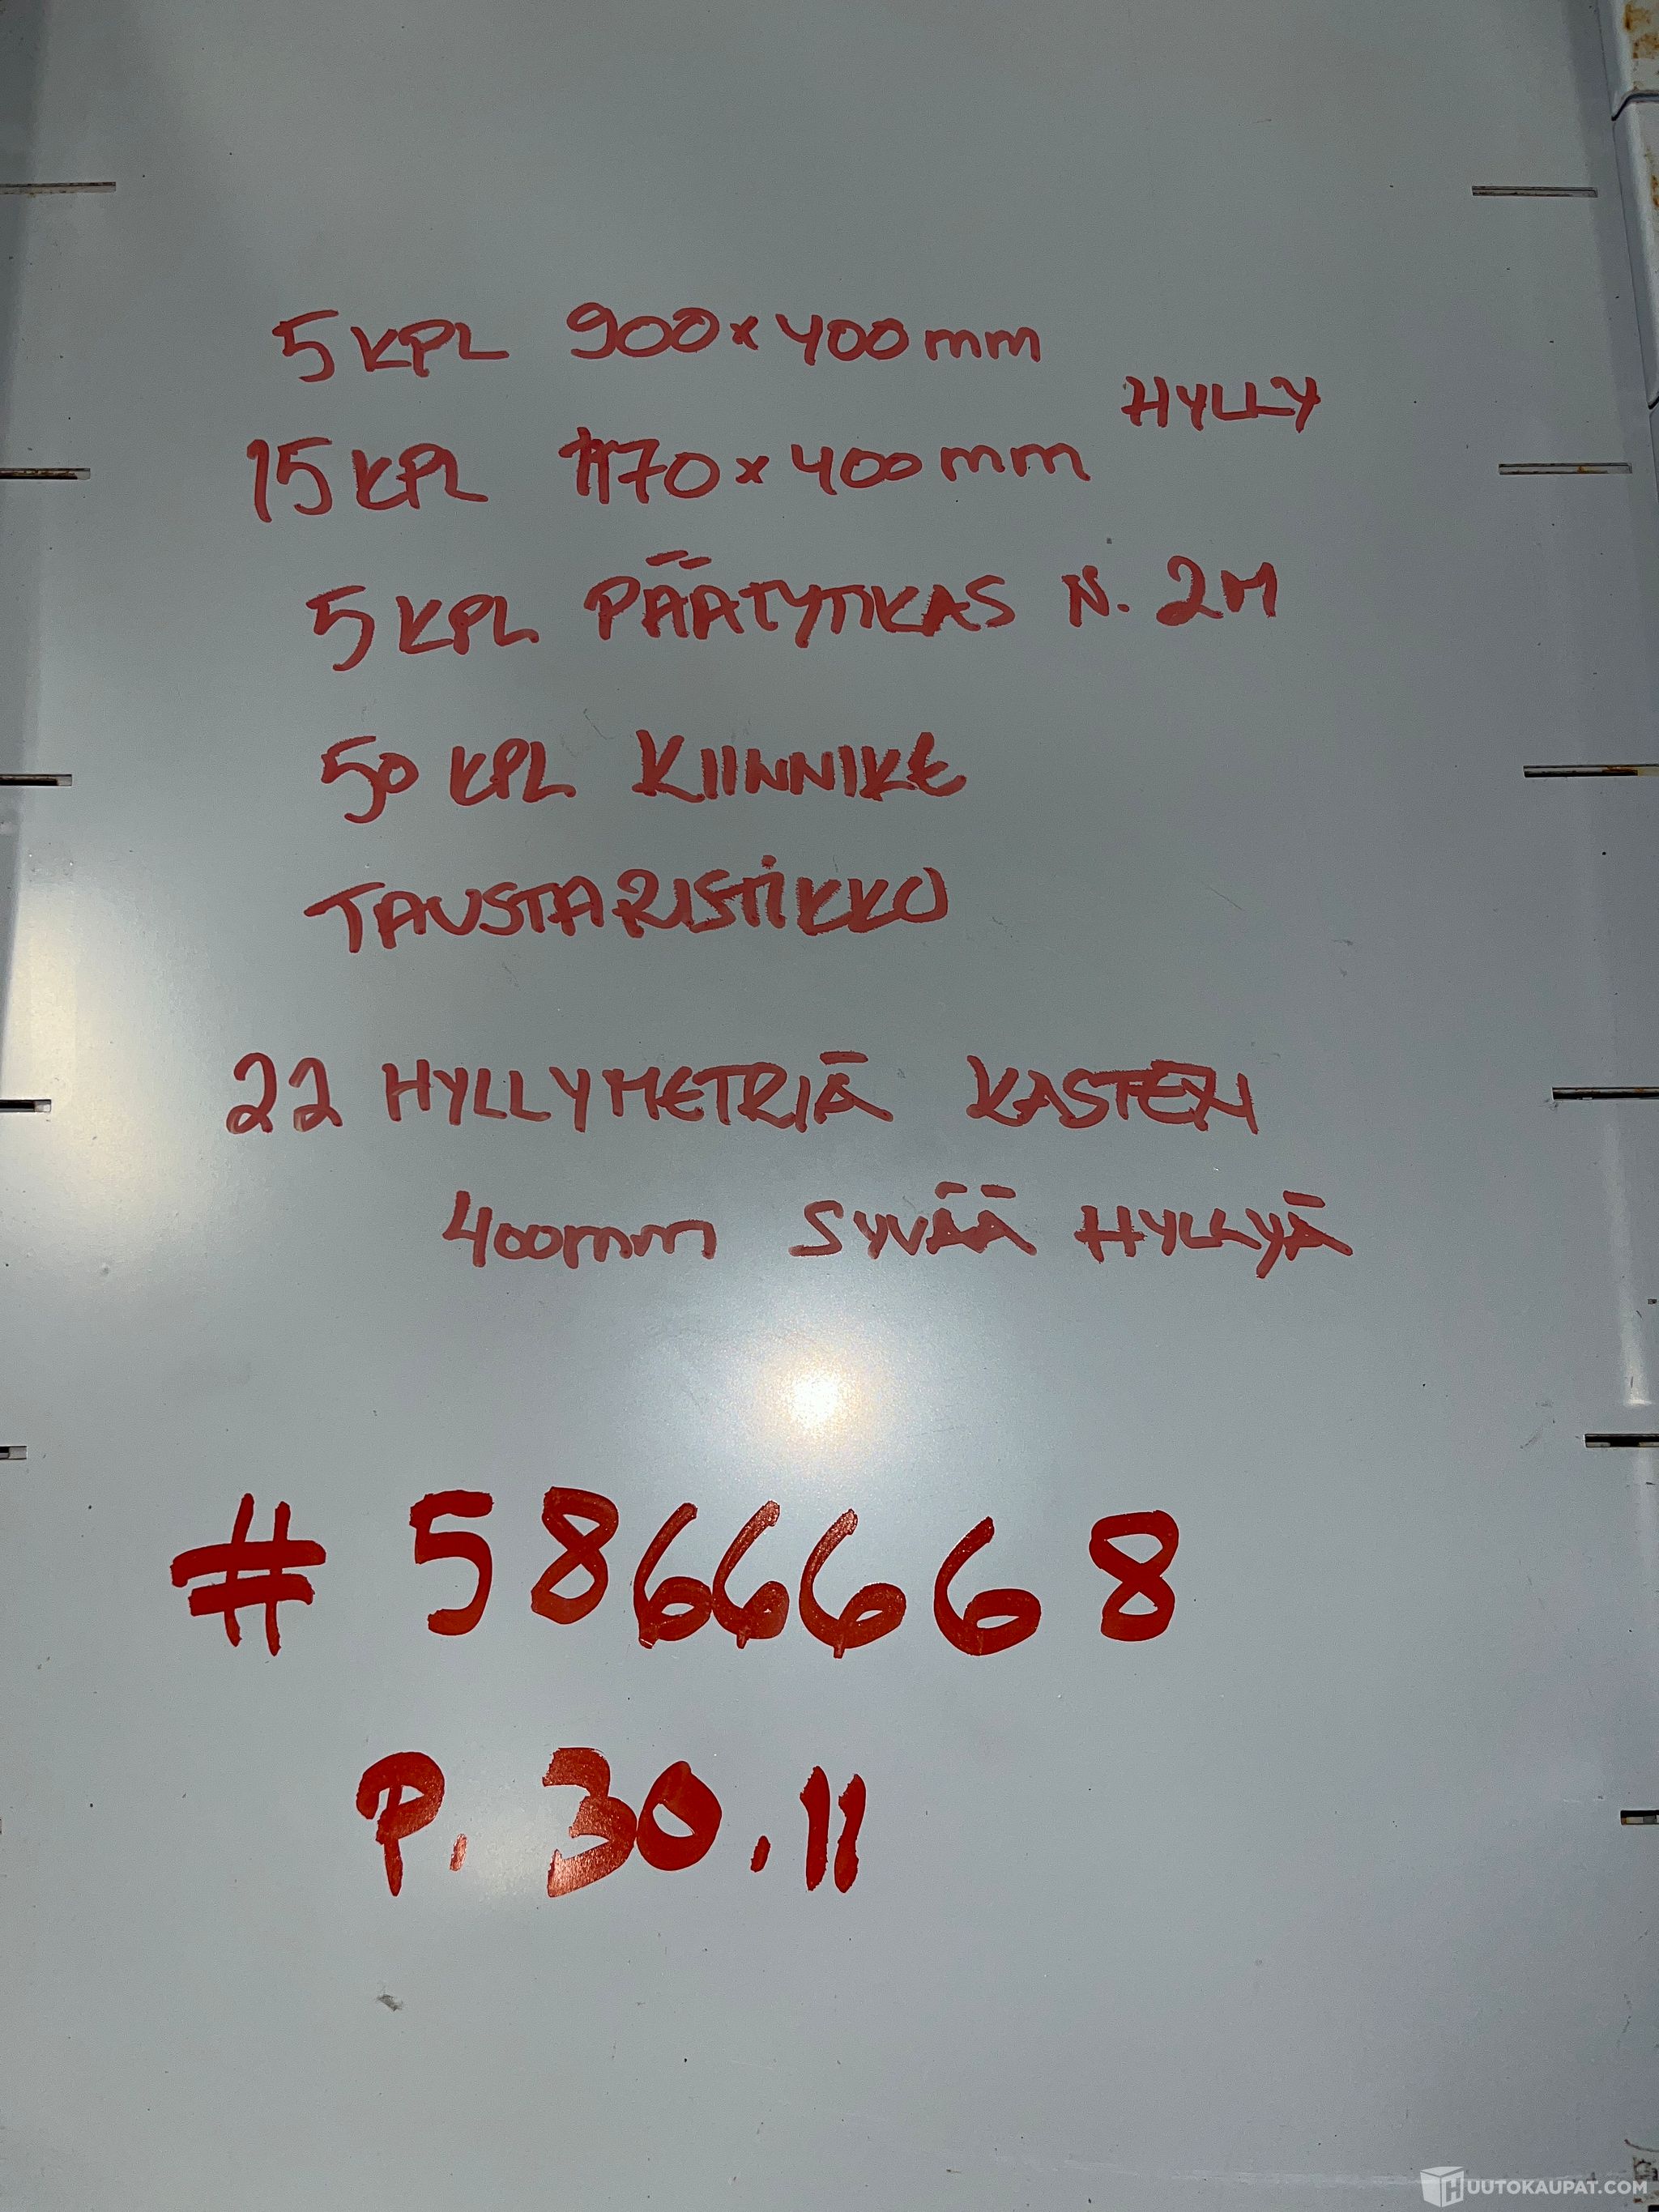 5 KPL 900 x 400 mm
HYLLY
15 KPL 1170 x 400 mm
5 KPL PÄÄTYTIKAS N. 2M
50 KPL KIINNIKE
TAUSTARISTIKKO
22 HYLLYMETRIÄ KASTEN
400mm SYVÄÄ HYLLYÄ
# 5866668
P. 30.11
HUUTOKAUPAT.COM